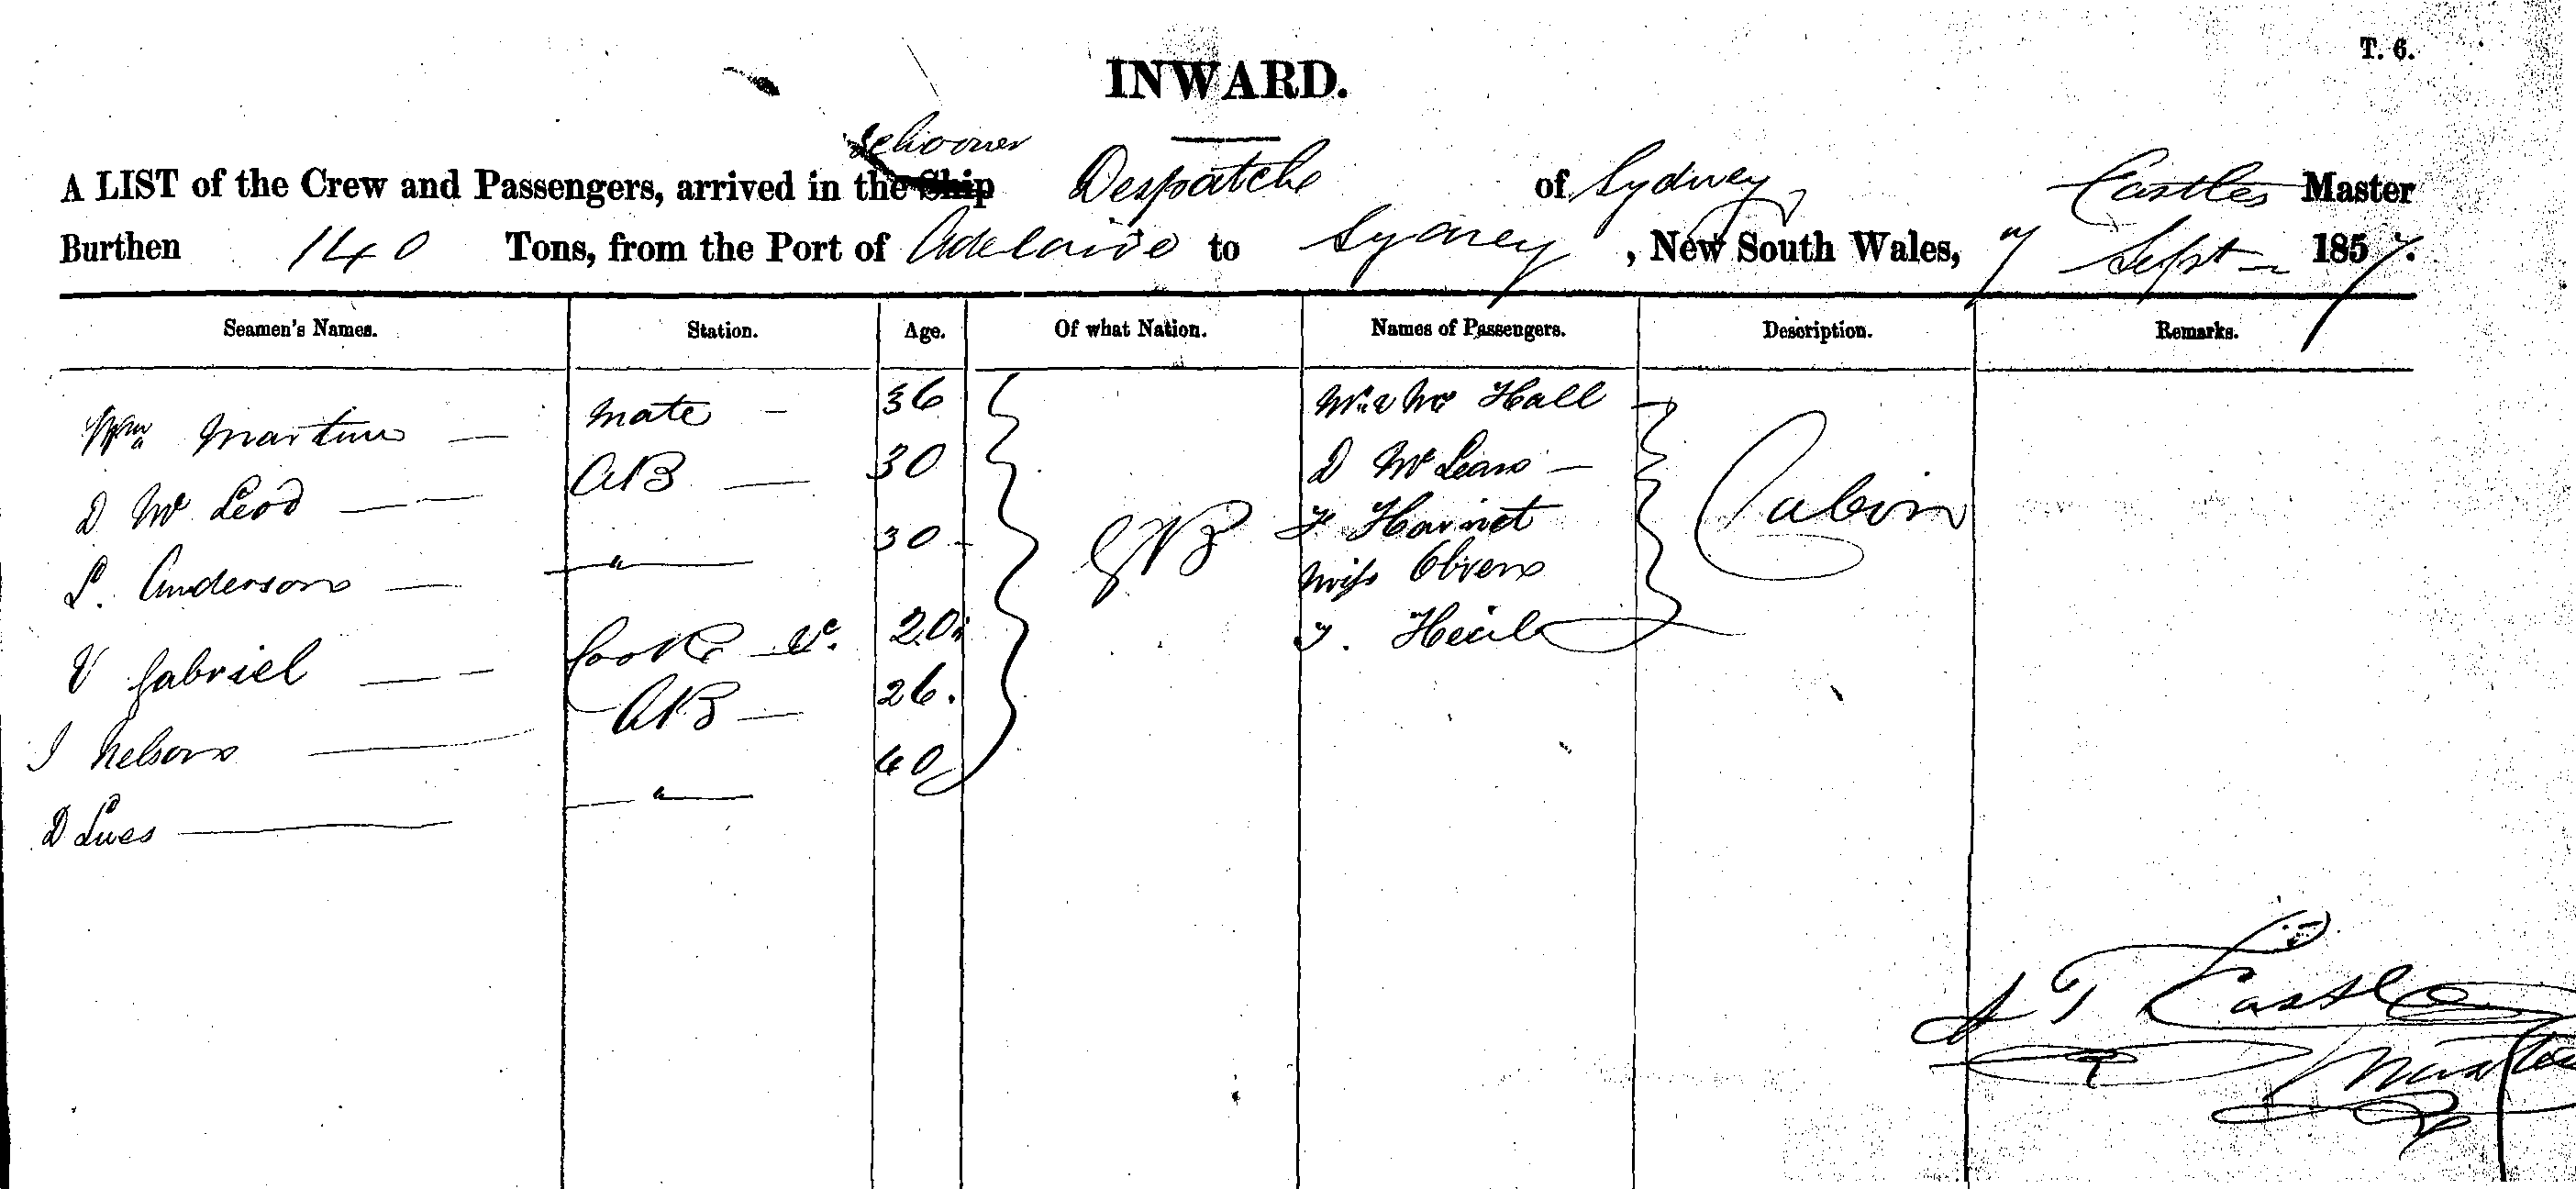 T. 6.
INWARD.
Schooner
A LIST of the Crew and Passengers, arrived in the Ship Despatch of Sydney Castles Master
Burthen 140 Tons, from the Port of Adelaide to Sydney, New South Wales, 7 Sept 1857.
Seamen's Names. Station. Age. Of what Nation. Names of Passengers. Description. Remarks.
Wm Martin mate 36 Mr & Mrs Hall
D McLeod AB 30 D McLean
L. Anderson " 30 GB F Harriet Cabin
Miss Obrien
V Gabriel Cooke &c. 20 J.
J Nelson AB 26.
D Lues " 40
Castle
Master